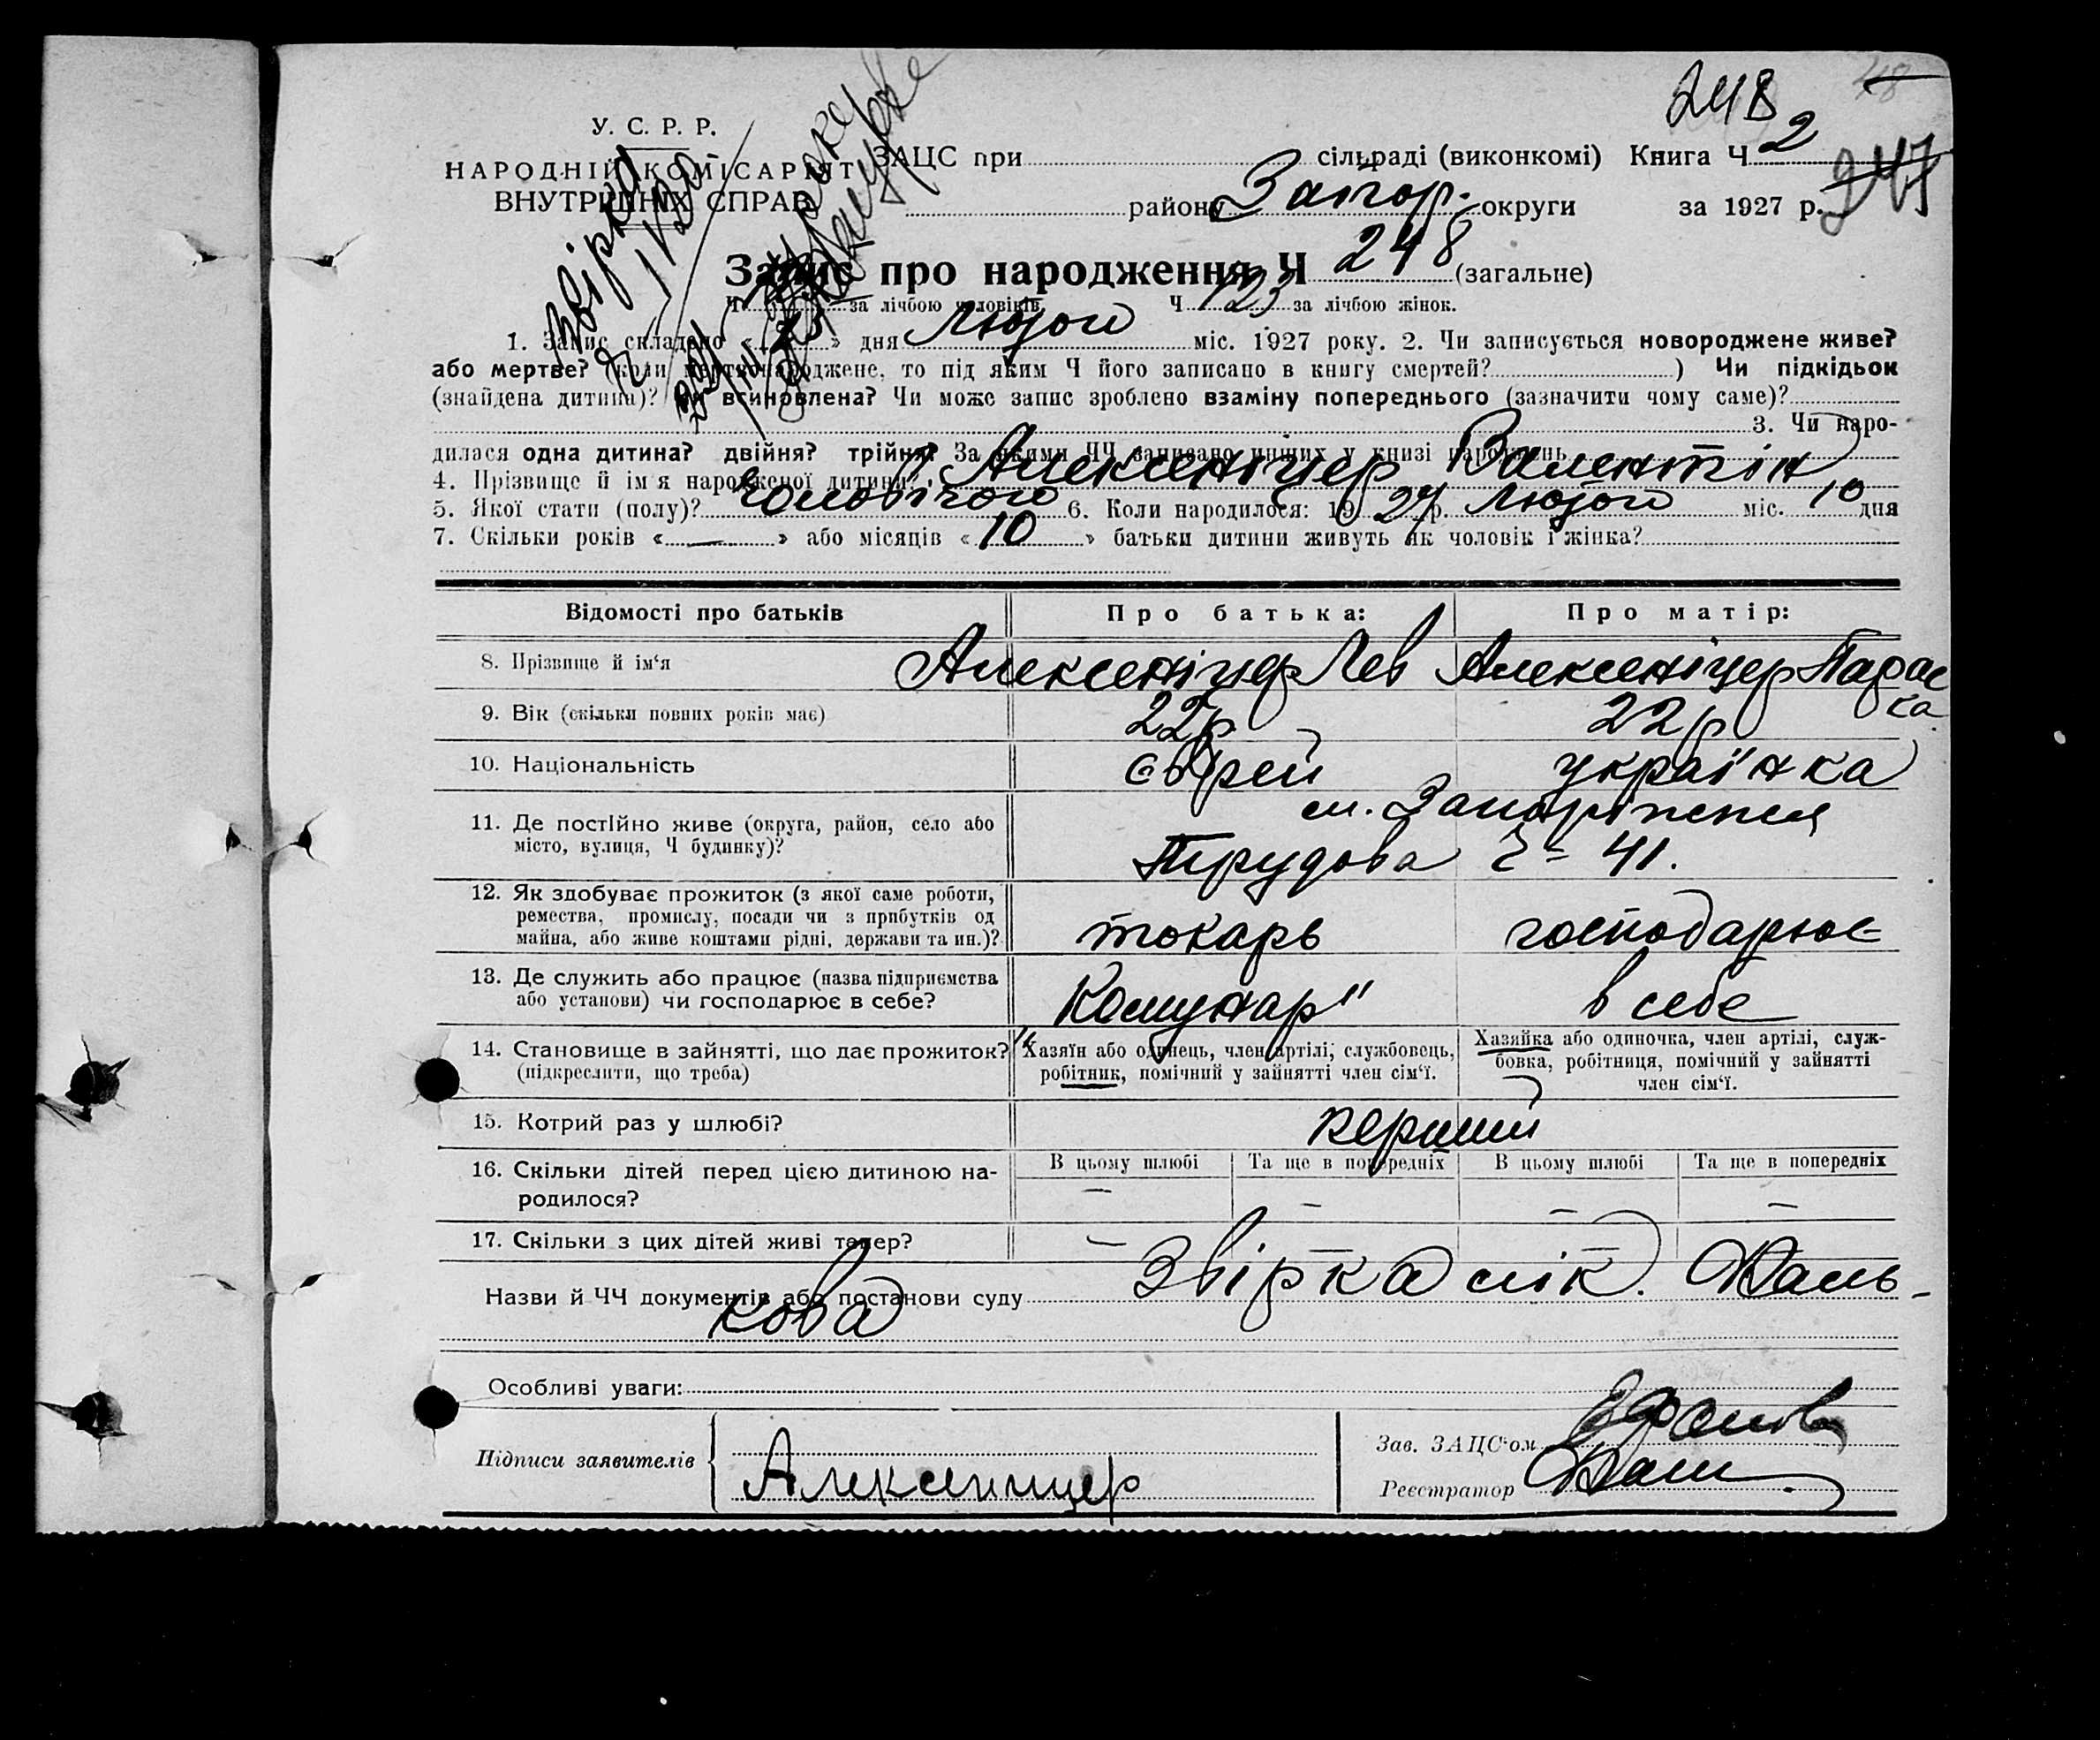 248
2
У. С. Р. Р.
НАРОДНІЙ КОМІСАРІЯТ
ВНУТРІШНІХ СПРАВ
ЗАЦС при сільраді (виконкомі) Книга Ч 2
району Запор. округи за 1927 р. 247
Запис про народження Ч 248 (загальне)
Ч за лічбою чоловіків Ч 123 за лічбою жінок.
1. Запис складено « » дня Лютого міс. 1927 року. 2. Чи записується новороджене живе?
або мертве? (коли мертвонароджене, то під яким Ч його записано в книгу смертей? ) Чи підкідьок
(знайдена дитина)? Чи всиновлена? Чи може запис зроблено взаміну попереднього (зазначити чому саме)?
3. Чи наро-
дилася одна дитина? двійня? трійня? За якими ЧЧ записано инших у книзі народжень
4. Прізвище й ім'я народженої дитини? Алексеніцер Валентін
5. Якої стати (полу)? Чоловічого 6. Коли народилося: 1927 р. Лютого міс. 10 дня
7. Скільки років « — » або місяців « 10 » батьки дитини живуть як чоловік і жінка?
Відомості про батьків Про батька: Про матір:
8. Прізвище й ім‘я Алексеніцер Лев Алексеніцер Параска
9. Вік (скільки повних років має) 22 р 22 р
10. Національність єврей українка
11. Де постійно живе (округа, район, село або м. Запоріжжя
місто, вулиця, Ч будинку)? Трудова Ч = 41.
12. Як здобуває прожиток (з якої саме роботи,
ремества, промислу, посади чи з прибутків од
майна, або живе коштами рідні, держави та ин.)? токарь господарює
13. Де служить або працює (назва підприємства
або установи) чи господарює в себе? "Комунар" в себе
14. Становище в зайнятті, що дає прожиток? Хазяїн або одинець, член артілі, службовець, Хазяйка або одиночка, член артілі, служ-
(підкреслити, що треба) робітник, помічний у зайнятті член сім‘ї. бовка, робітниця, помічний у зайнятті
член сім‘ї.
15. Котрий раз у шлюбі? перший
16. Скільки дітей перед цією дитиною на- В цьому шлюбі Та ще в попередніх В цьому шлюбі Та ще в попередніх
родилося? — — — —
17. Скільки з цих дітей живі тепер? — — —
Назви й ЧЧ документів або постанови суду Звірка лік. Даль-
кова
Особливі уваги:
Підписи заявителів Алексеницер
Зав. ЗАЦС‘ом
Реєстратор